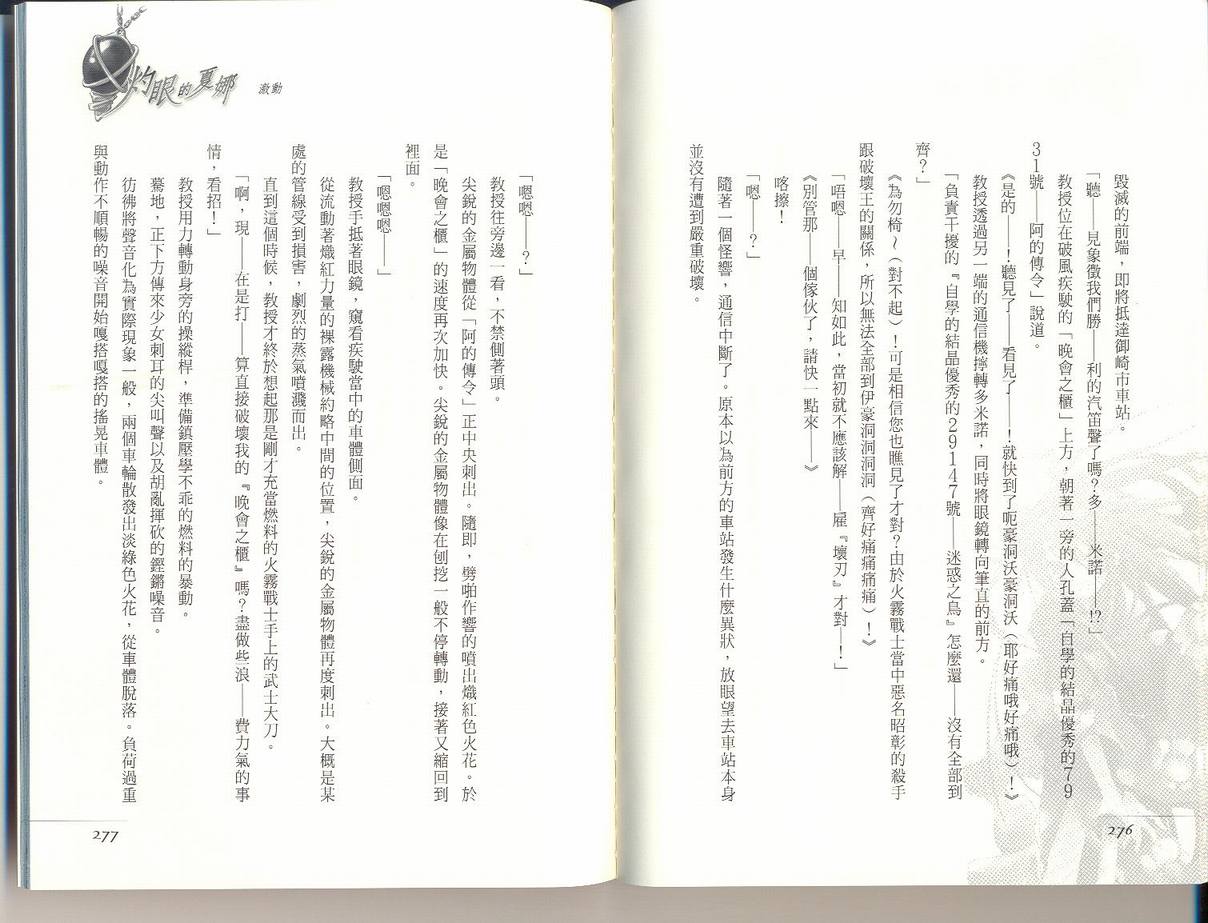 毀滅的前端，即將抵達御崎市車站。
「聽——見象徵我們勝——利的汽笛聲了嗎？多——米諾——!?」
教授位在破風疾駛的「晚會之櫃」上方，朝著一旁的人孔蓋「自學的結晶優秀的79
31號——阿的傳令」說道。
《是的——！聽見了——看見了——！就快到了呃豪洞沃豪洞沃（耶好痛哦好痛哦）！》
教授透過另一端的通信機擰轉多米諾，同時將眼鏡轉向筆直的前方。
「負責干擾的『自學的結晶優秀的29147號——迷惑之鳥』怎麼還——沒有全部到
齊？」
《為勿椅～（對不起）！可是相信您也瞧見了才對？由於火霧戰士當中惡名昭彰的殺手
跟破壞王的關係，所以無法全部到伊豪洞洞洞洞（齊好痛痛痛痛）！》
「唔嗯——早——知如此，當初就不應該解——雇『壞刃』才對——！」
《別管那——個傢伙了，請快一點來——》
喀擦！
「嗯——？」
隨著一個怪響，通信中斷了。原本以為前方的車站發生什麼異狀，放眼望去車站本身
並沒有遭到嚴重破壞。
276
灼眼的夏娜
激動
「嗯嗯——？」
教授往旁邊一看，不禁側著頭。
尖銳的金屬物體從「阿的傳令」正中央刺出。隨即，劈啪作響的噴出熾紅色火花。於
是「晚會之櫃」的速度再次加快。尖銳的金屬物體像在刨挖一般不停轉動，接著又縮回到
裡面。
「嗯嗯嗯——」
教授手抵著眼鏡，窺看疾駛當中的車體側面。
從流動著熾紅力量的裸露機械約略中間的位置，尖銳的金屬物體再度刺出。大概是某
處的管線受到損害，劇烈的蒸氣噴濺而出。
直到這個時候，教授才終於想起那是剛才充當燃料的火霧戰士手上的武士大刀。
「啊，現——在是打——算直接破壞我的『晚會之櫃』嗎？盡做些浪——費力氣的事
情，看招！」
教授用力轉動身旁的操縱桿，準備鎮壓學不乖的燃料的暴動。
驀地，正下方傳來少女刺耳的尖叫聲以及胡亂揮砍的鏗鏘噪音。
彷彿將聲音化為實際現象一般，兩個車輪散發出淡綠色火花，從車體脫落。負荷過重
與動作不順暢的噪音開始嘎搭嘎搭的搖晃車體。
277